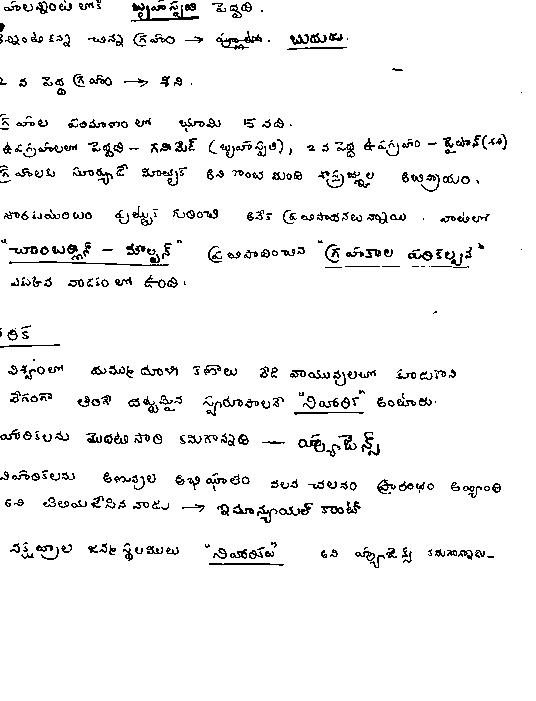 హలన్నింటు లోకి బృహస్పతి పెద్దది.
చిన్న గ్రహం → ప్లూటో. బుధుడు.
2 వ పెద్ద గ్రహం → శని.
గ్రహాల పరిమాణం లో భూమి 5 వది.
ఉపగ్రహాలలో పెద్దది - గనిమెడ్ (బృహస్పతి), 2 వ పెద్ద ఉపగ్రహం - టైటాన్ (శని)
గ్రహాలకు సూర్యుడే మాతృక అని కొంత మంది శాస్త్రజ్ఞుల అభిప్రాయం.
గురించి అనేక ప్రతిపాదనలు న్నాయి. వాటిలో
"చాంబర్లిన్ - మౌల్టన్" ప్రతిపాదించిన "గ్రహకాల పరికల్పన"
వాడకం లో ఉంది.
విశ్వంలో దుమ్ము ధూళి కణాలు వేడి వాయువులలో కూడుకొని
వేగంగా తిరిగే దట్టమైన స్వరూపాలనే "నిహారిక" అంటారు.
హారికలను మొదటి సారి కనుగొన్నది — హ్యూజెన్స్
నిహారికలను అణువుల అభిఘాతం వలన చలనం ప్రారంభం అయ్యింది
అని తెలియజేసిన వాడు → ఇమాన్యుయల్ కాంట్
నక్షత్రాల జన్మ స్థలములు "నిహారికలు" అని హ్యూజెన్స్ కనుగొన్నాడు-